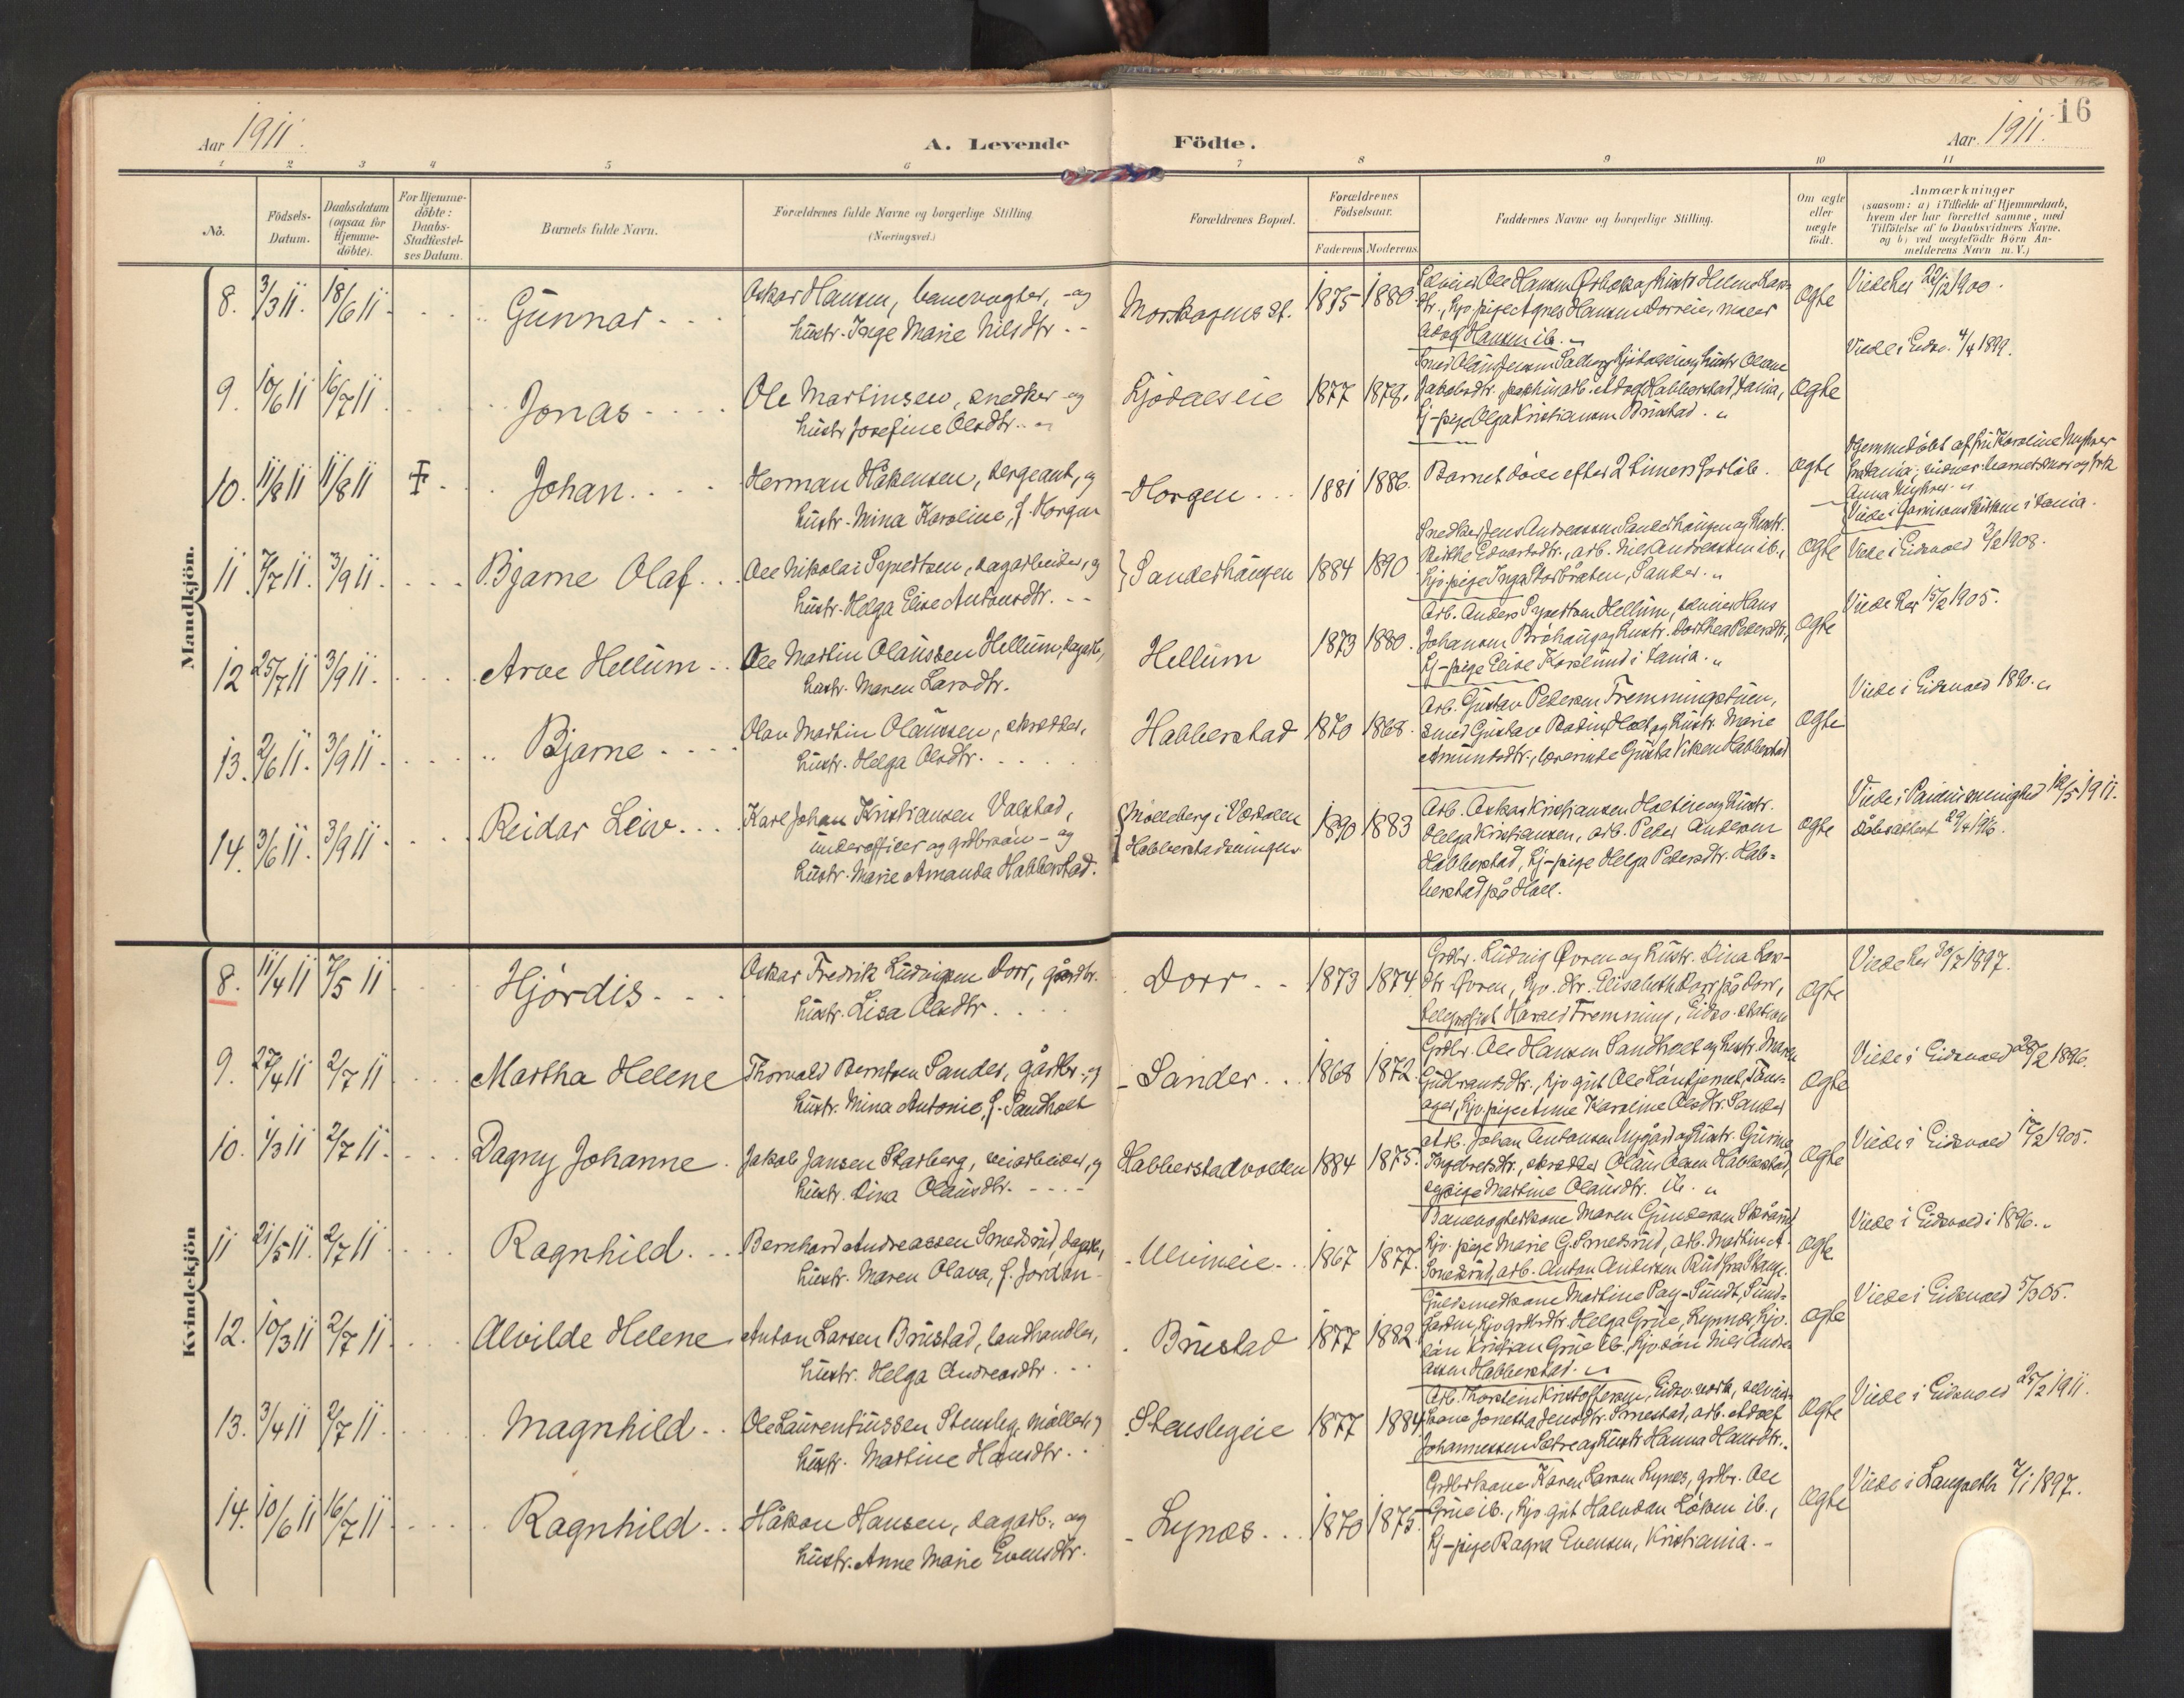 16
Aar 1911.
A. Levende Födte.
Aar 1911.
1 2 3 4 5 6 7 8 9 10 11
No.
Födsels-
Datum.
Daabsdatum
(ogsaa for
Hjemme-
döbte).
For Hjemme-
döbte:
Daabs-
Stadfæstel-
ses Datum.
Barnets fulde Navn.
Forældrenes fulde Navne og borgerlige Stilling
(Næringsvei.)
Forældrenes Bopæl.
Forældrenes
Födselsaar.
Faderens Moderens
Faddernes Navne og borgerlige Stilling.
Om ægte
eller
uægte
födt.
Anmærkninger
(saasom: a) i Tilfælde af Hjemmedaab,
hvem der har forrettet samme, med
Tilföielse af to Daabsvidners Navne.
og b) ved uægtefödte Börn An-
melderens Navn m. V.)
Mandkjön.
8. 3/3 11. 18/6 11. Gunnar
Oskar Hansen, banevogter, og
hustr. Inge Marie Nilsdtr.
Morskogens st. 1875 1880
Ægte
Vied her 22/12 1900.
9. 10/6 11 16/7 11 Jonas
Ole Martinsen, snedker og
hustr Josefine Olesdtr.
Ljödalseie 1877 1878.
Kj-pige Olga Kristiansen Brustad.
Ægte
Viede i Eidsv. 4/4 1899.
10. 11/8 11 11/8 11 Johan
Herman Håkensen, sergeant, og
hustr. Mina Karoline, f. Horgen
Horgen 1881 1886.
Barnet döde efter 2 timers forlöb.
Ægte
Hjemmedöbt af fru Karoline Myhrer
Anna Myhrer
Viede i Garnisons kirken i Kania.
11. 7/7 11. 3/9 11. Bjarne Olaf
Ole Nikolai Syvertsen, dagarbeider, og
hustr. Helga Elise Antonsdtr.
Sanderhaugen 1884 1890
Snedker Jens Andreassen Sanderhaugen og hustr.
Kjv. pige Inga Storbråten, Sander.
Ægte
Viede i Eidsvold 2/2 1908.
12 25/7 11 3/9 11. Arve Hellum
Ole Martin Olaussen Hellum, dagarb,
hustr. Maren Larsdtr.
Hellum 1873 1880.
Arb. Anders Syvertsen Hellum, selveier Hans
Johansen Bråhaug og hustr. Dorthea Pedersdtr,
Kj-pige Elise Korslund i Kania.
Ægte
Viede her 15/2 1905.
13. 2/6 11. 3/9 11. Bjarne
Olav Martin Olaussen, skrædder,
hustr. Helga Olsdtr.
Habberstad 1870 1868.
Arb. Gustav Pedersen Fremmingstuen,
smed Gustav Bodin Hoel og hustr. Marie
Amundsdtr., lærerinde Gusta Viken Habberstad
Ægte
Viede i Eidsvold 1890.
14. 3/6 11. 3/9 11. Reidar Leiv
Karl Johan Kristiansen Valstad,
underofficer og grdbrsön - og
hustr. Marie Amanda Habberstad.
Habberstadeningen 1890 1883
Arb. Oskar Kristiansen Holteie og hustr.
Helga Kristiansen, arb. Peder Andersen
Habberstad, Kj-pige Helga Pedersdtr. Hab-
berstad på Hoel.
ægte
12/5 1911.
Dåbsattest 29/4 1916.
Kvindekjön
8. 11/4 11 7/5 11 Hjördis
Oskar Fredrik Ludvigsen Dorr, gårdbr.
hustr. Lisa Olsdtr.
Dorr 1873 1874.
Grdbr. Ludvig Øvren og hustr. Dina Lars-
dtr Øvren, Kjv. dtr. Elisabeth Dorr på Dorr,
telegrafist Harald Fremming, Eidsv. station
Ægte
Viede her 30/7 1897.
9. 27/4 11 2/7 11 Martha Helene
Thorvald Berntsen Sander, gårdbr. og
hustr. Mina Antonie, f. Sandholt
Sander 1868 1872.
Grdbr. Ole Hansen Sandholt og hustr. Maren
ager, Kjv. pige Anne Karoline Olsdtr. Sander
Ægte
Viede i Eidsvold 28/2 1896.
10. 1/3 11 2/7 11. Dagny Johanne
Jakob Jansen Skarberg, veiarbeider, og
hustr. Dina Olausdtr.
Habberstadvolden 1884 1875.
Arb. Johan Antonsen Nygård og hustr. Gurine
Ingebretsdtr., skrædder Olaus Olsen Habberstad,
og pige Martine Olausdtr. ib.
Ægte
Viede i Eidsvold 12/2 1905.
11 21/5 11. 2/7 11. Ragnhild
Bernhard Andreassen Smedsrud, dagarb,
hustr. Maren Olava, f. Jordan
1867 1877.
Banevogterkone Maren Gundersen
Kjv. pige Marie G. Smedsrud, arb. Martin A.
Smedsrud, arb. Anton Andersen Rud fra Stange.
Ægte
Viede i Eidsvold i 1896.
12. 10/3 11 2/7 11 Alvilde Helene
Anton Larsen Brustad, landhandler,
hustr. Helga Andreasdtr.
Brustad 1877 1882.
Guldsmedkone Martine Pay-Sundt, Sund-
assen Habberstad.
Ægte
Viede i Eidsvold 5/3 05.
13. 3/4 11 2/7 11. Magnhild
Ole Laurentiussen Stensby, möller, og
hustr. Martine Hansdtr.
Stensbyeie 1877 1884
Arb. Thorstein Kristoffersen, Eidsv. verk, selveier-
kone Jonetta Jensdtr. Smestad, arb. Adolf
Johannessen Sætre og hustr Hanna Hansdtr.
Ægte
Viede i Eidsvold 25/2 1911.
14. 10/6 11 16/7 11. Ragnhild
Håkon Hansen, dagarb., og
hustr. Anne Marie Evensdtr.
Lynæs 1870 1875.
Grdbrkone Karen Larsen Lynes, grdbr. Ole
Grue ib., Kjv. gut Halvdan Löken ib.,
Kj-pige Ragna Evensen, Kristiania.
Ægte
Viede i Langseth 7/1 1897.